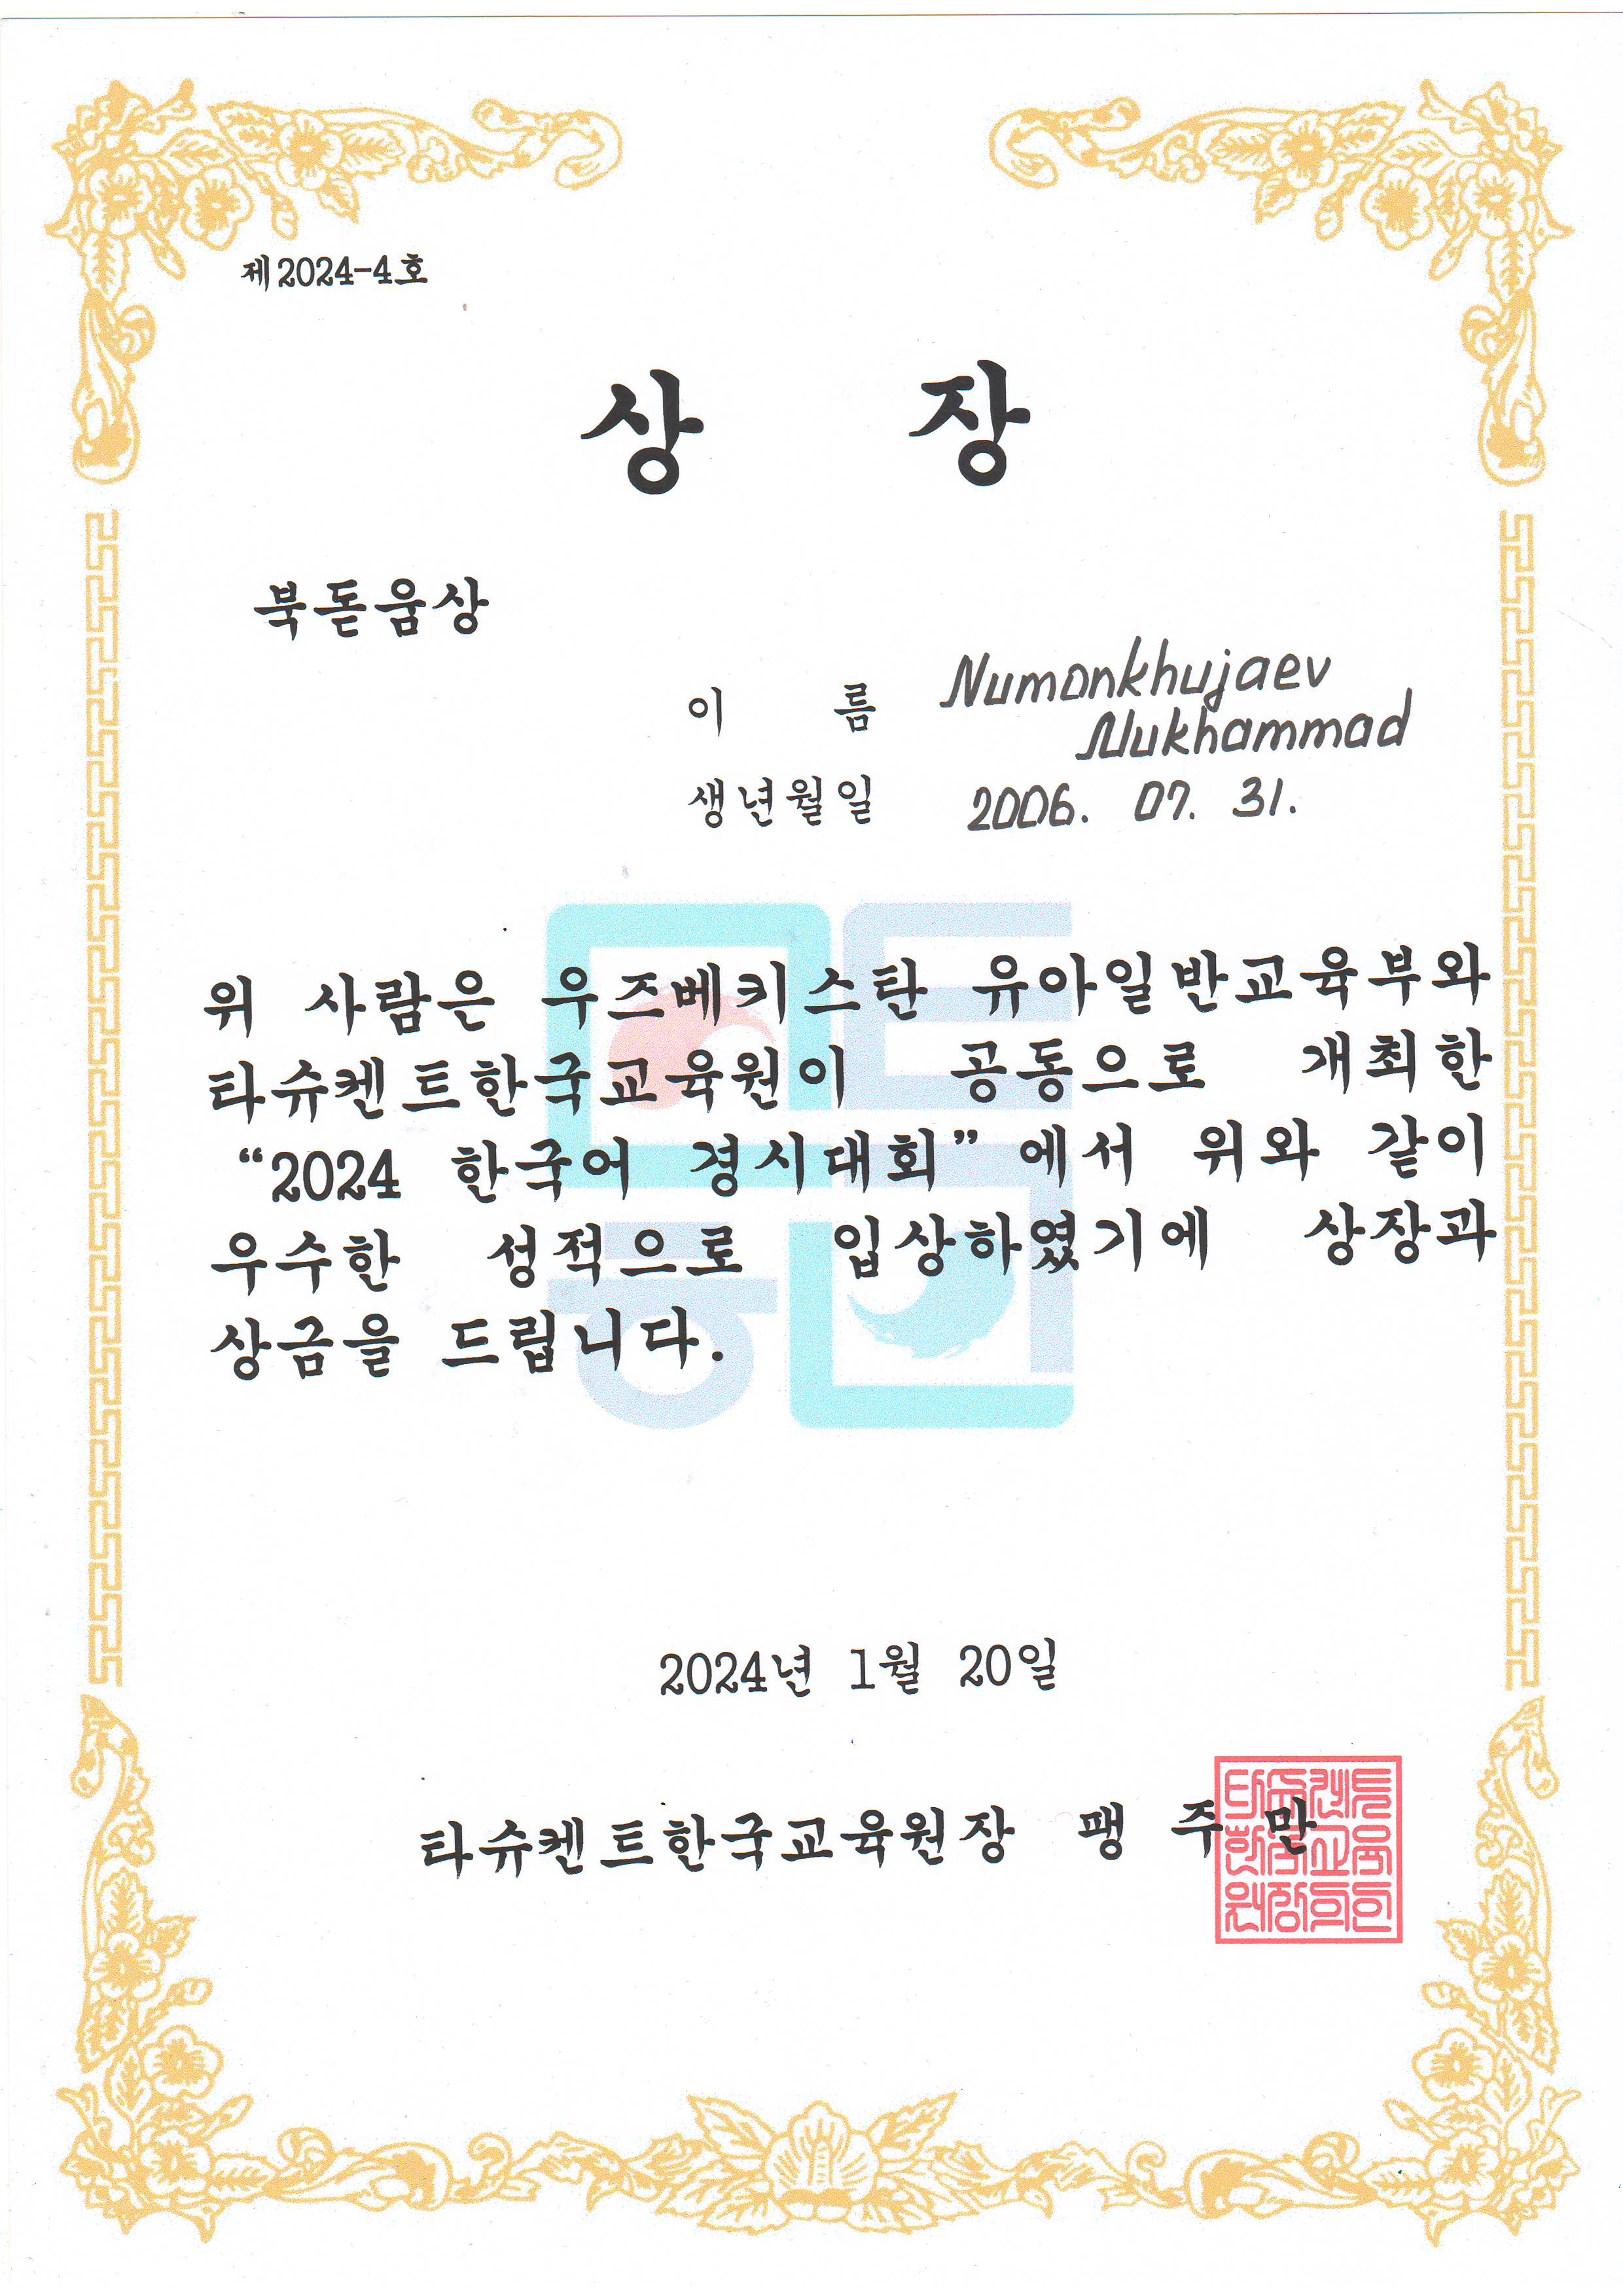 제2024-4호
상 장
북돋움상
이 름 Numonkhujaev
Mukhammad
생년월일 2006. 07. 31.
위 사람은 우즈베키스탄 유아일반교육부와
타슈켄트한국교육원이 공동으로 개최한
“2024 한국어 경시대회”에서 위와 같이
우수한 성적으로 입상하였기에 상장과
상금을 드립니다.
2024년 1월 20일
타슈켄트한국교육원장 팽 주 만